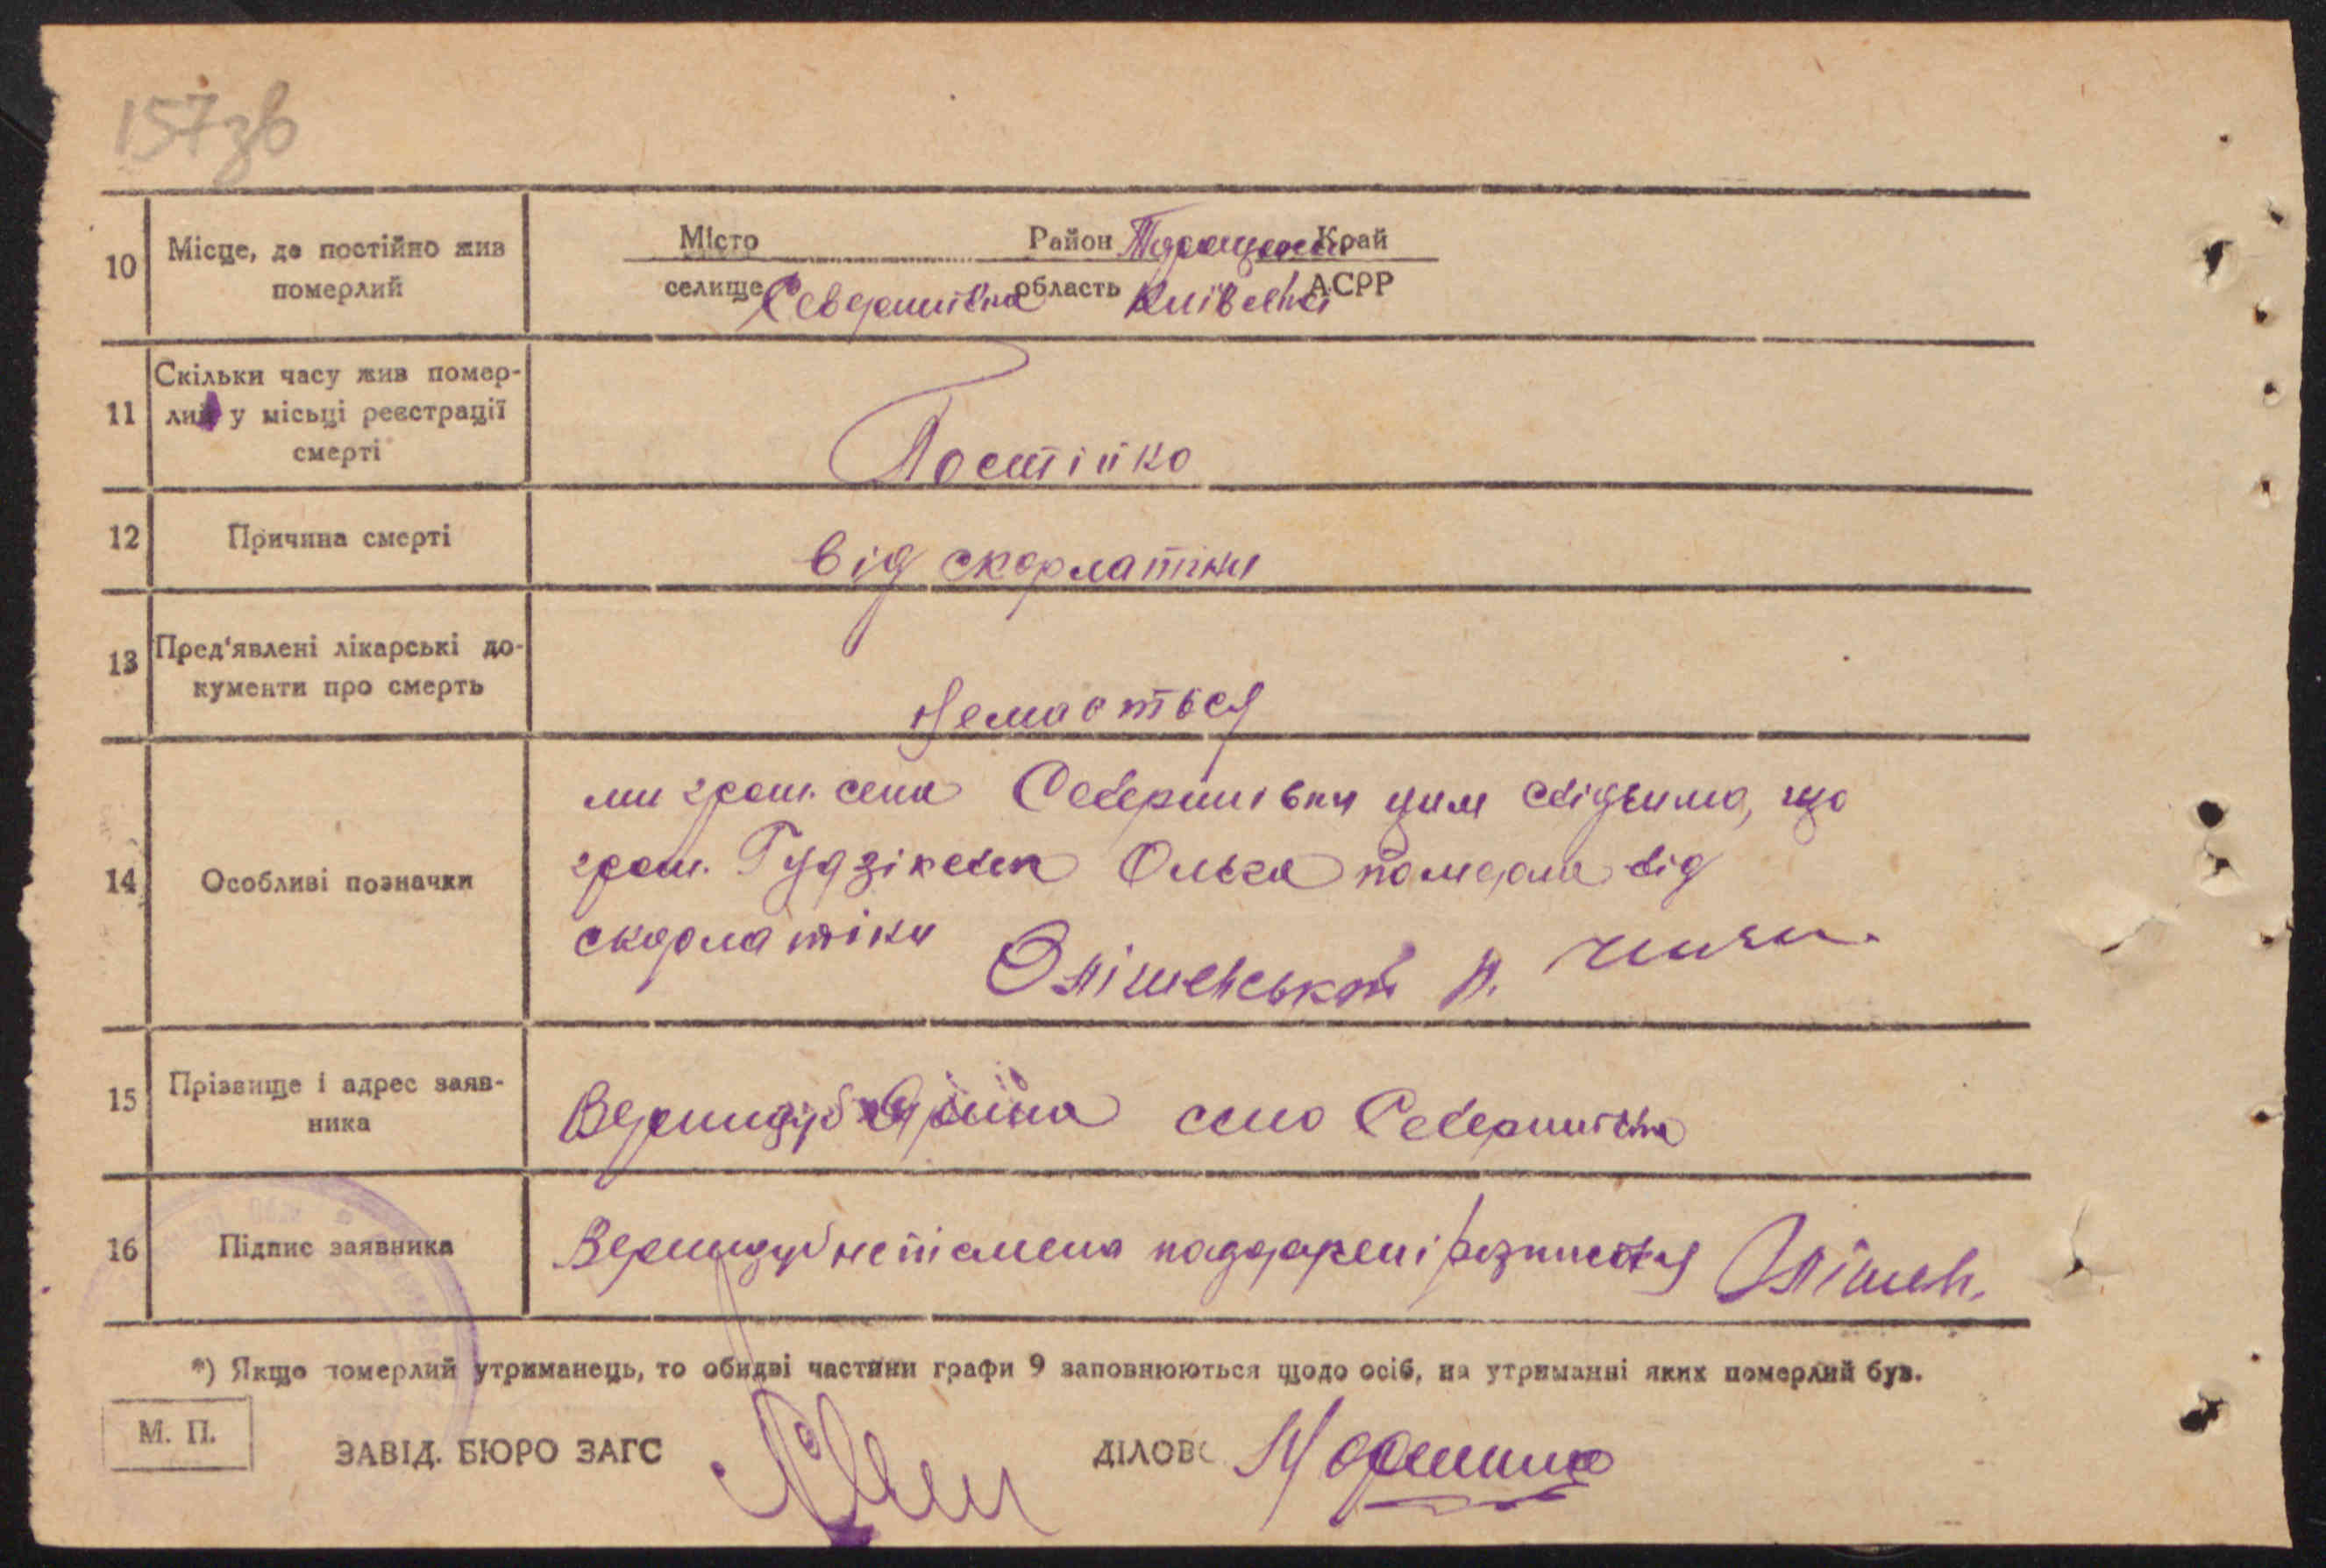 157зв
10 Місце, де постійно жив померлий
Місто Район Таращанськ Край
селище Северинівка область Київські АСРР
11 Скільки часу жив помер-
лий у місьці реєстрації
смерті
Постійно
12 Причина смерті
від скорлатіни
13 Пред'явлені лікарські до-
кументи про смерть
Немаэться
14 Особливі позначки
ми гром. села Северинівки цим свідчимо, що
гром. Гудзікевич Ольга померла від
скорлатіни
15 Прізвище і адрес заяв-
ника
Вернидуб село Северинівка
16 Підпис заявника
Вернидуб неписмена
*) Якщо померлий утриманець, то обидві частини графи 9 заповнюються щодо осіб, на утриманні яких померлий був.
М. П.
ЗАВІД. БЮРО ЗАГС ДІЛОВ